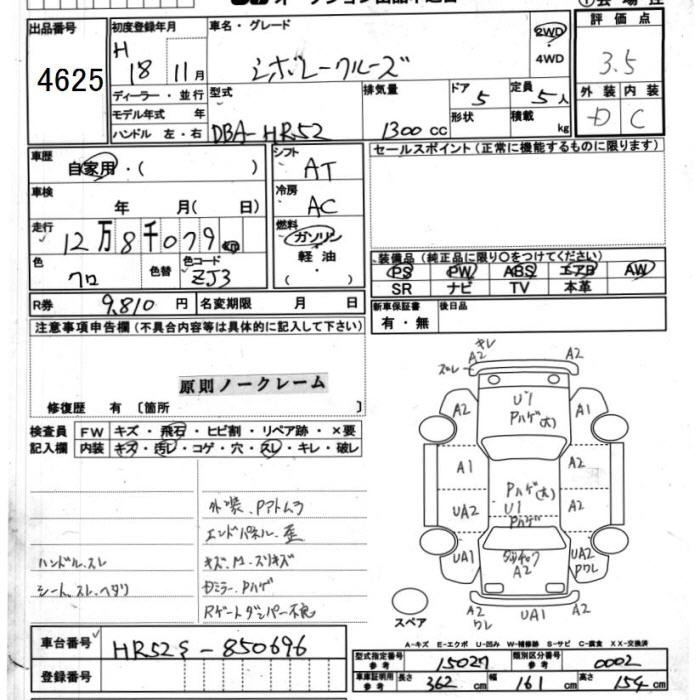 オークション出品申込書
出品番号
4625
初度登録年月
H
18 11月
ディーラー・並行
モデル年式 年
ハンドル 左・右
車名・グレード
シボレークルーズ
2WD
4WD
型式
DBA-HR52
排気量
1300 CC
ドア
5
形状
定員
5人
積載
kg
評価点
3.5
外装 内装
D C
車歴
自家用・( )
車検
年 月( 日)
走行
12万8千079km
色
クロ
色替
色コード
ZJ3
R券 9,810 円 名変期限 月 日
シフト
AT
冷房
AC
燃料
ガソリン
軽油
( )
セールスポイント(正常に機能するものに限ります)
装備品(純正品に限り○をつけてください)
PS PW ABS エアB AW
SR ナビ TV 本革
新車保証書
有・無
後日品
注意事項申告欄(不具合内容等は具体的に記入して下さい)
原則ノークレーム
修復歴 有 〔箇所 〕
検査員
記入欄
FW キズ・飛石・ヒビ割・リペア跡・×要
内装 キズ・汚レ・コゲ・穴・スレ・キレ・破レ
外装.Pアトムラ
エンドパネル.歪
ハンドル.スレ
キズ.M.スリキズ
シート.スレ.ヘタリ
Dミラー.Pハゲ
Rゲートダンパー不良
キレ
A2
ズレ
A2
U1
Pハゲ(大)
A2
A1
A1
A2
Pハゲ(大)
U1
Pハゲ
UA2
A2
UA1
A2
UA2
Pワレ
A2
ワレ
UA1
A2
スペア
A-キズ E-エクボ U-凹み W-補修跡 S-サビ C-腐食 XX-交換済
車台番号
HR52S-850696
登録番号
型式指定番号
参考
15027
類別区分番号
参考
0002
車庫証明用
参考
長さ
362 cm
幅
161 cm
高さ
154 cm